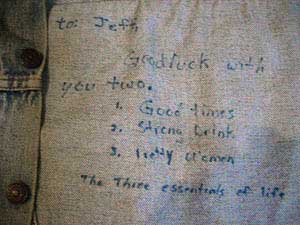 to: Jeff
Goodluck with
you two.
1. Good times
2. Strong Drink
3. Pretty Women
The Three essentials of life